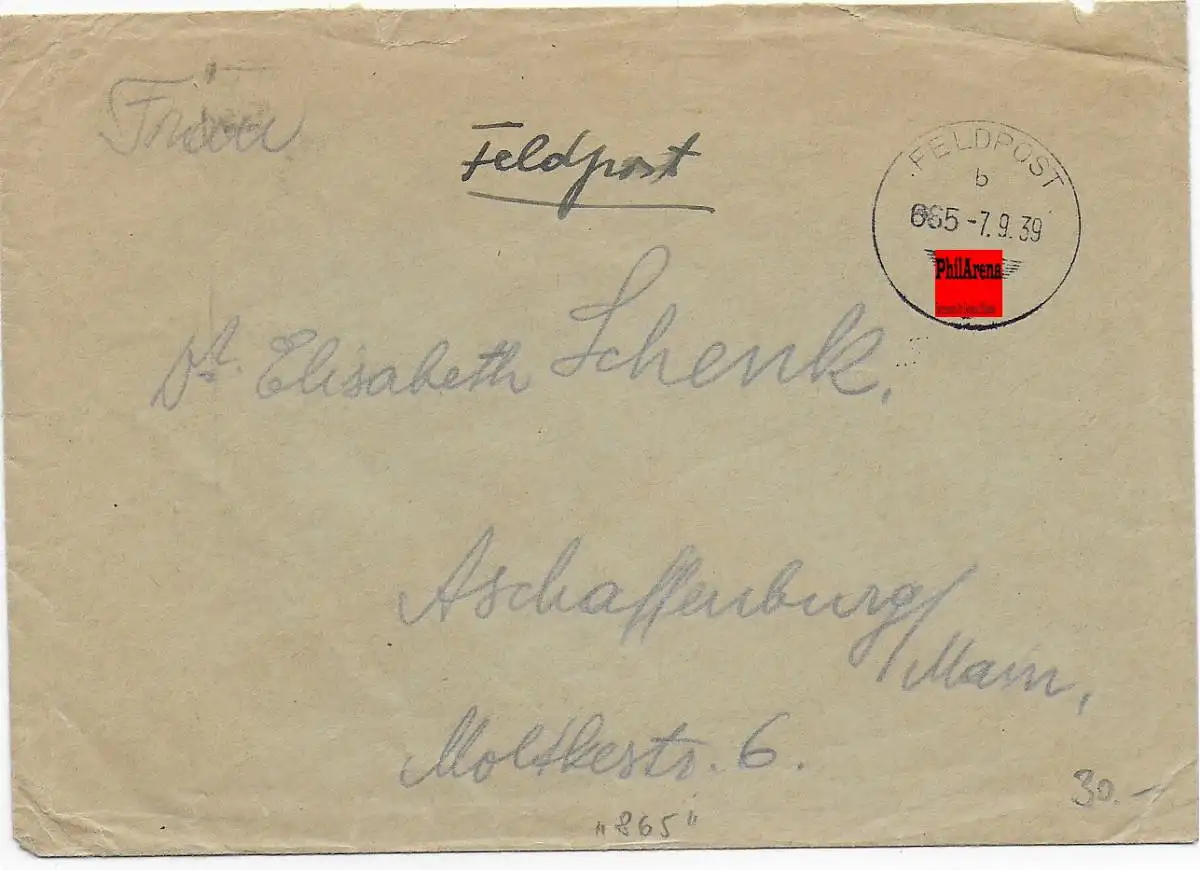 Feldpost
FELDPOST
b
-7.9.39
PhilArena
Dr. Elisabeth Schenk,
Aschaffenburg/
Main,
Moltkestr. 6.
30.-
"865"